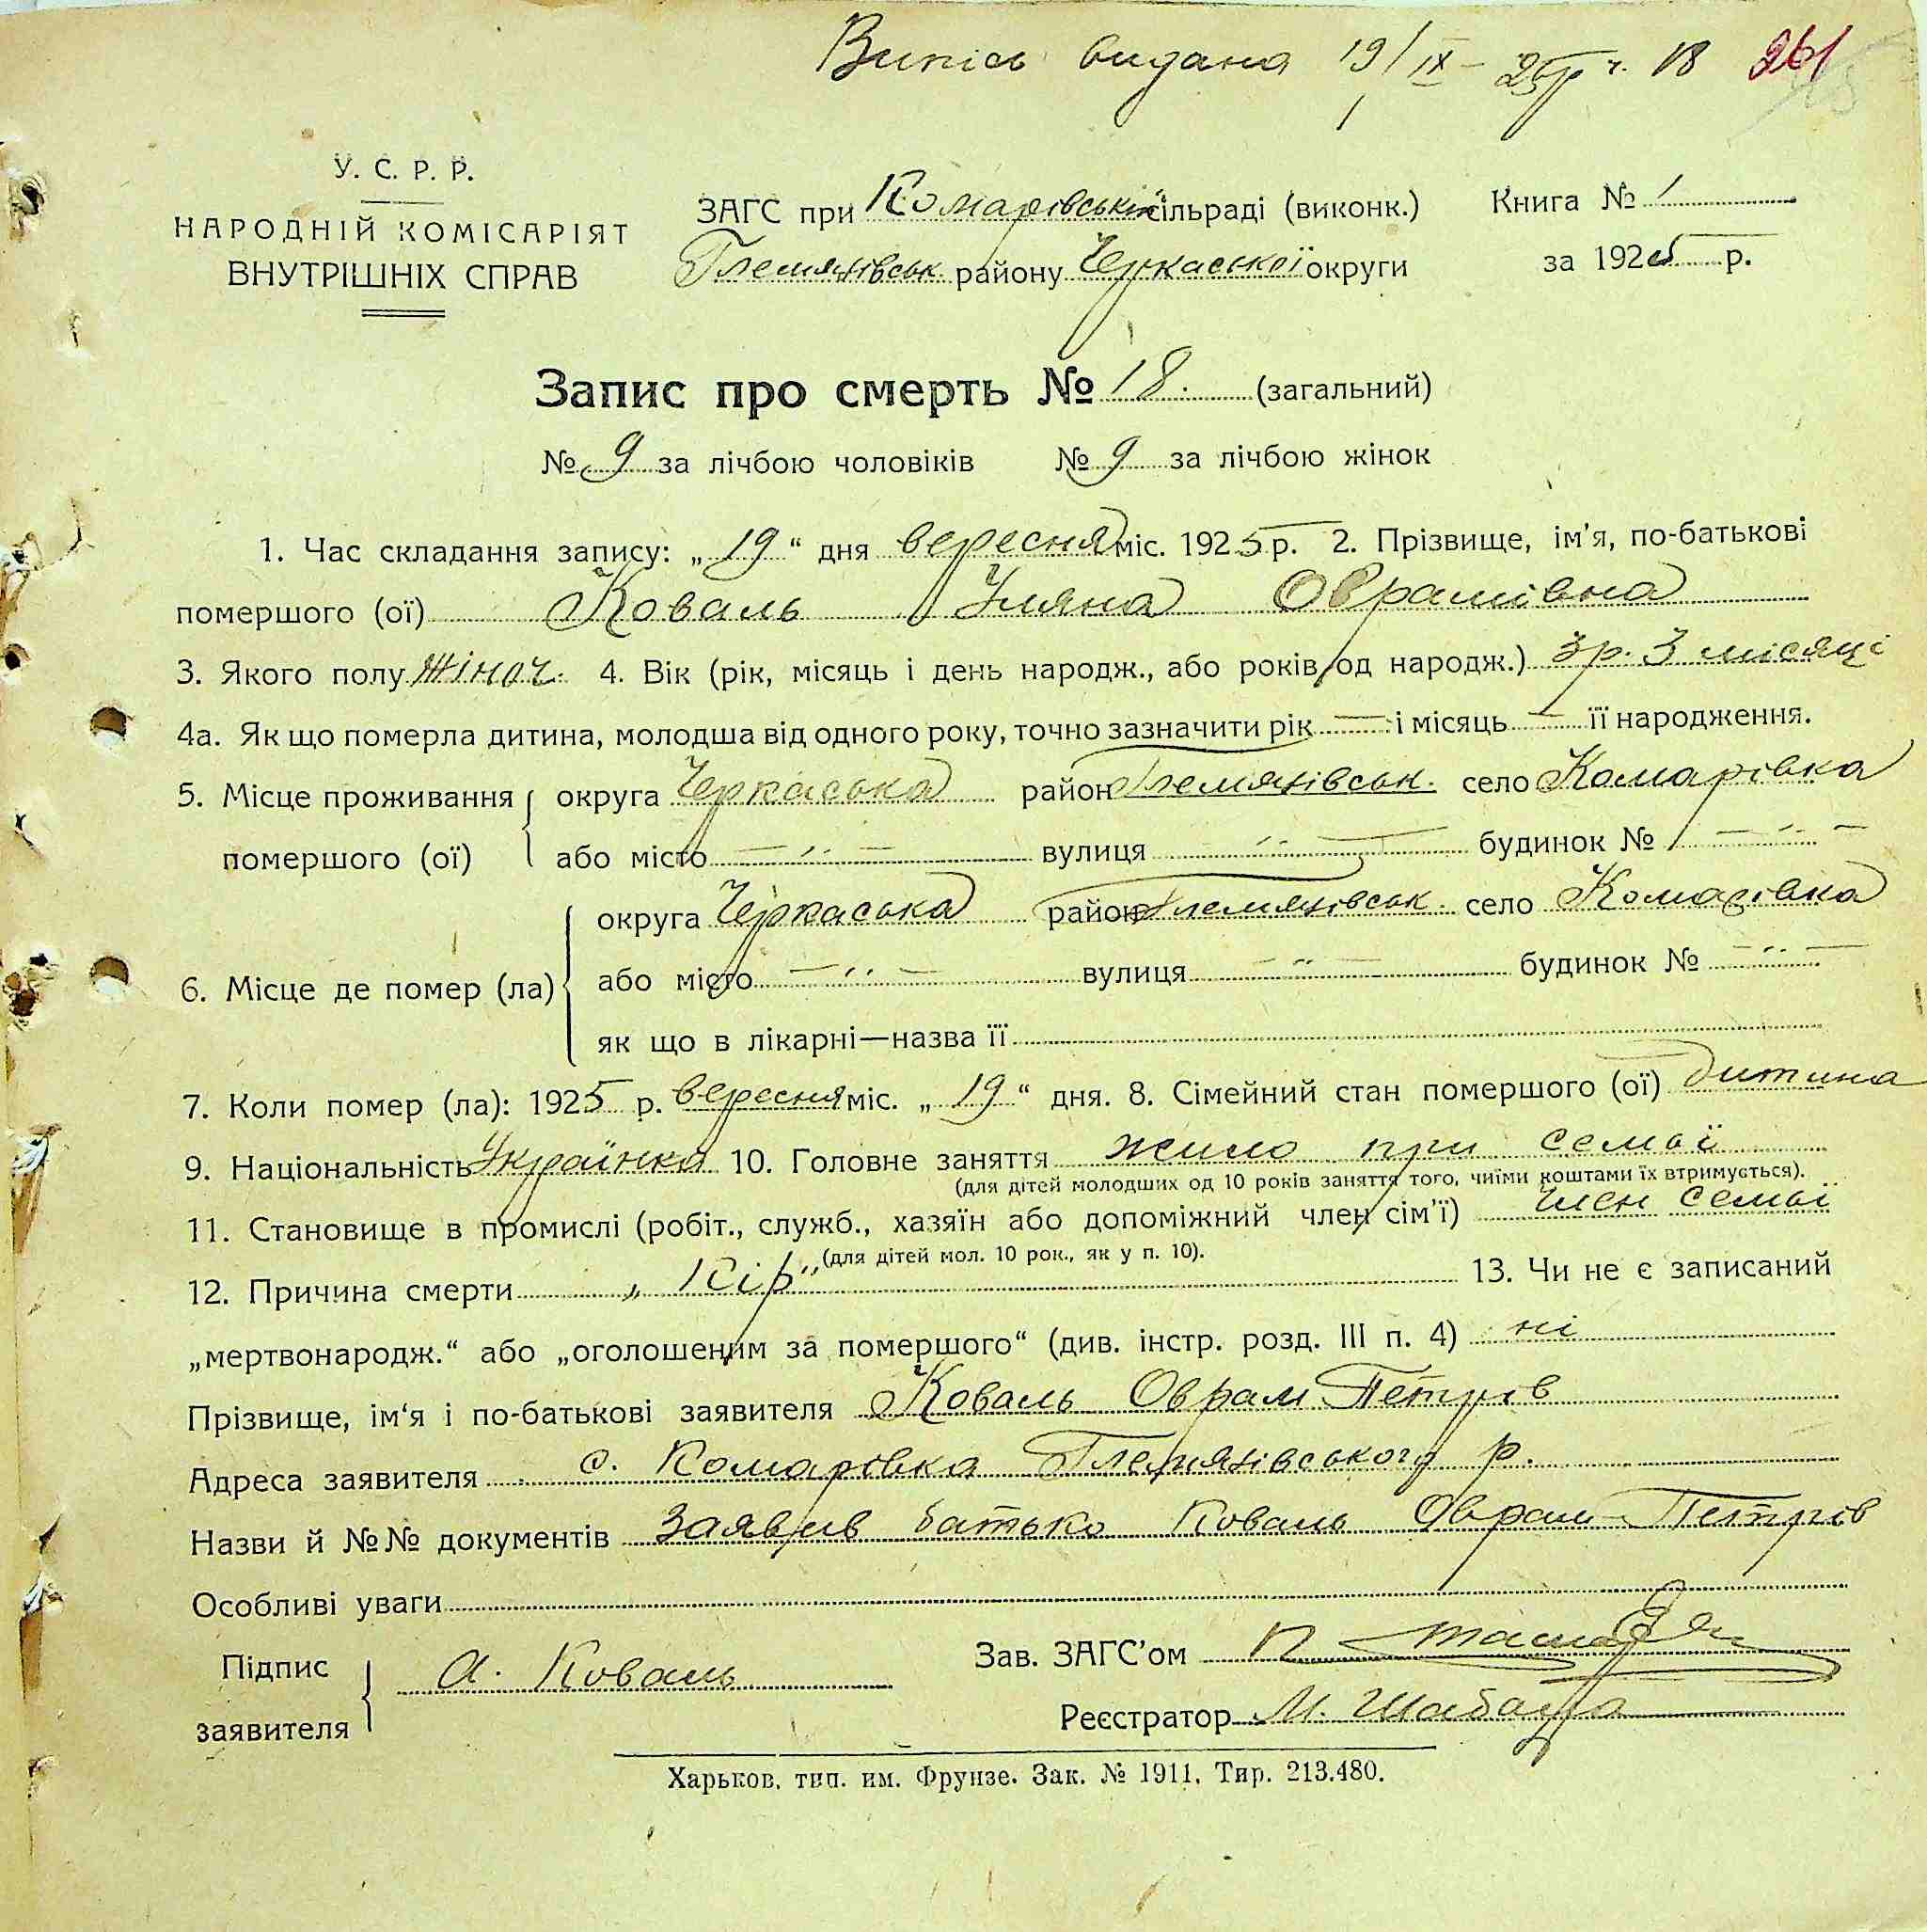 Випісь видана 19/IX – 25 р. ч. 18 261
У. С. Р. Р.
НАРОДНІЙ КОМІСАРІЯТ
ВНУТРІШНІХ СПРАВ
ЗАГС при Комарівській сільраді (виконк.)
Глемязівськ. району Черкаської округи
Книга № 1
за 1925 р.
Запис про смерть № 18. (загальний)
№ 9 за лічбою чоловіків № 9 за лічбою жінок
1. Час складання запису: „19“ дня вересня міс. 1925 р. 2. Прізвище, ім'я, по-батькові
помершого (ої) Коваль Уляна Оврамівна
3. Якого полу жіноч. 4. Вік (рік, місяць і день народж., або років од народж.) 3 р. 3 місяці
4а. Як що померла дитина, молодша від одного року, точно зазначити рік — і місяць — її народження.
5. Місце проживання округа Черкаська район Глемязівськ. село Комарівка
помершого (ої) або місто — „ — вулиця „ — будинок № — „ —
округа Черкаська район Глемязівськ. село Комарівка
6. Місце де помер (ла) або місто — „ — вулиця — „ — будинок № — „ —
як що в лікарні—назва її
7. Коли помер (ла): 1925 р. вересня міс. „19“ дня. 8. Сімейний стан помершого (ої) дитина
9. Національність Українка 10. Головне заняття жило при семьї
(для дітей молодших од 10 років заняття того, чиїми коштами їх втримується).
11. Становище в промислі (робіт., служб., хазяїн або допоміжний член сім'ї) член семьї
(для дітей мол. 10 рок., як у п. 10).
12. Причина смерти „Кір“ 13. Чи не є записаний
„мертвонародж.“ або „оголошеним за помершого“ (див. інстр. розд. III п. 4) ні
Прізвище, ім'я і по-батькові заявителя Коваль Оврам Петрів
Адреса заявителя с. Комарівка Глемязівського р.
Назви й №№ документів Заявив батько Коваль Оврам Петрів
Особливі уваги
Підпис
заявителя А. Коваль
Зав. ЗАГС'ом П
Реєстратор М. Шабала
Харьков, тип. им. Фрунзе. Зак. № 1911. Тир. 213.480.